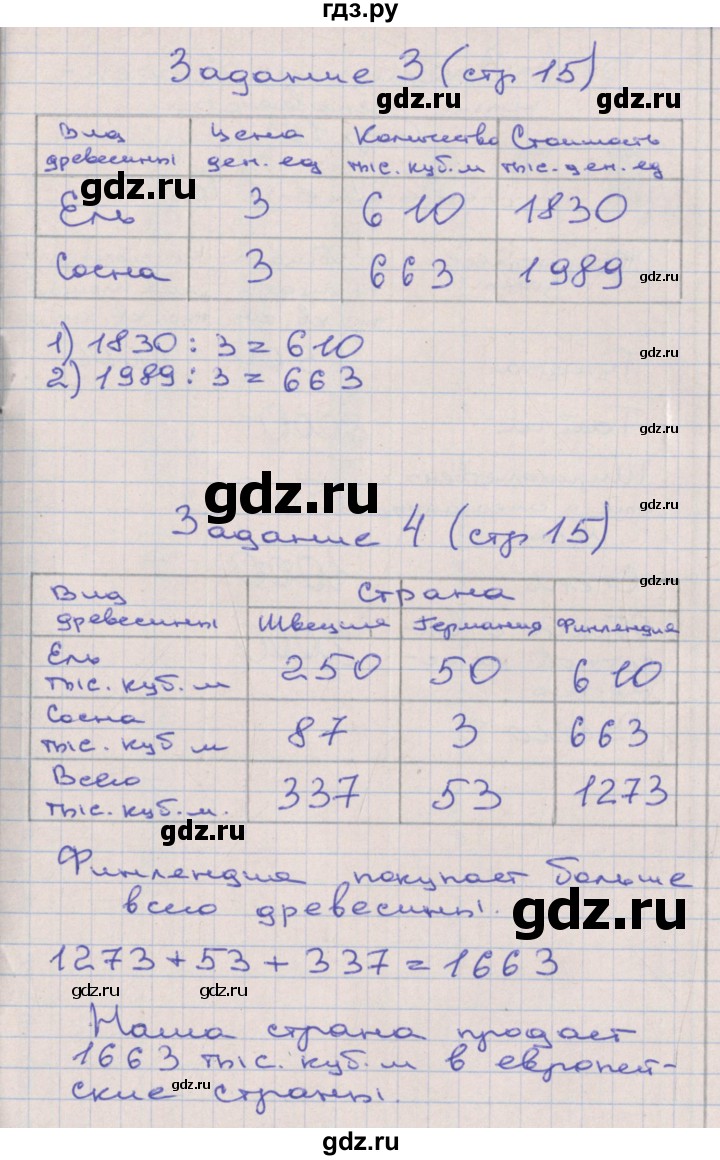 гдз.ру
Задание 3 (стр 15)
gdz.ru gdz.ru
Вид древесины Цена ден. ед Количество тыс. куб. м Стоимость тыс. ден. ед
gdz.ru
Ель 3 610 1830
Сосна 3 663 1989
gdz.ru
1) 1830 : 3 = 610
gdz.ru
2) 1989 : 3 = 663
gdz.ru
gdz.ru
gdz.ru
Задание 4 (стр 15)
gdz.ru
Вид древесины Страна
Швеция Германия Финлендия
Ель тыс. куб. м 250 50 610
Сосна тыс. куб м 87 3 663
Всего тыс. куб. м. 337 53 1273
gdz.ru
Финлендия покупает больше
всего древесины.
gdz.ru
1273 + 53 + 337 = 1663
gdz.ru gdz.ru
Наша страна продает
1663 тыс. куб. м в европей-
gdz.ru
ские страны.
gdz.ru